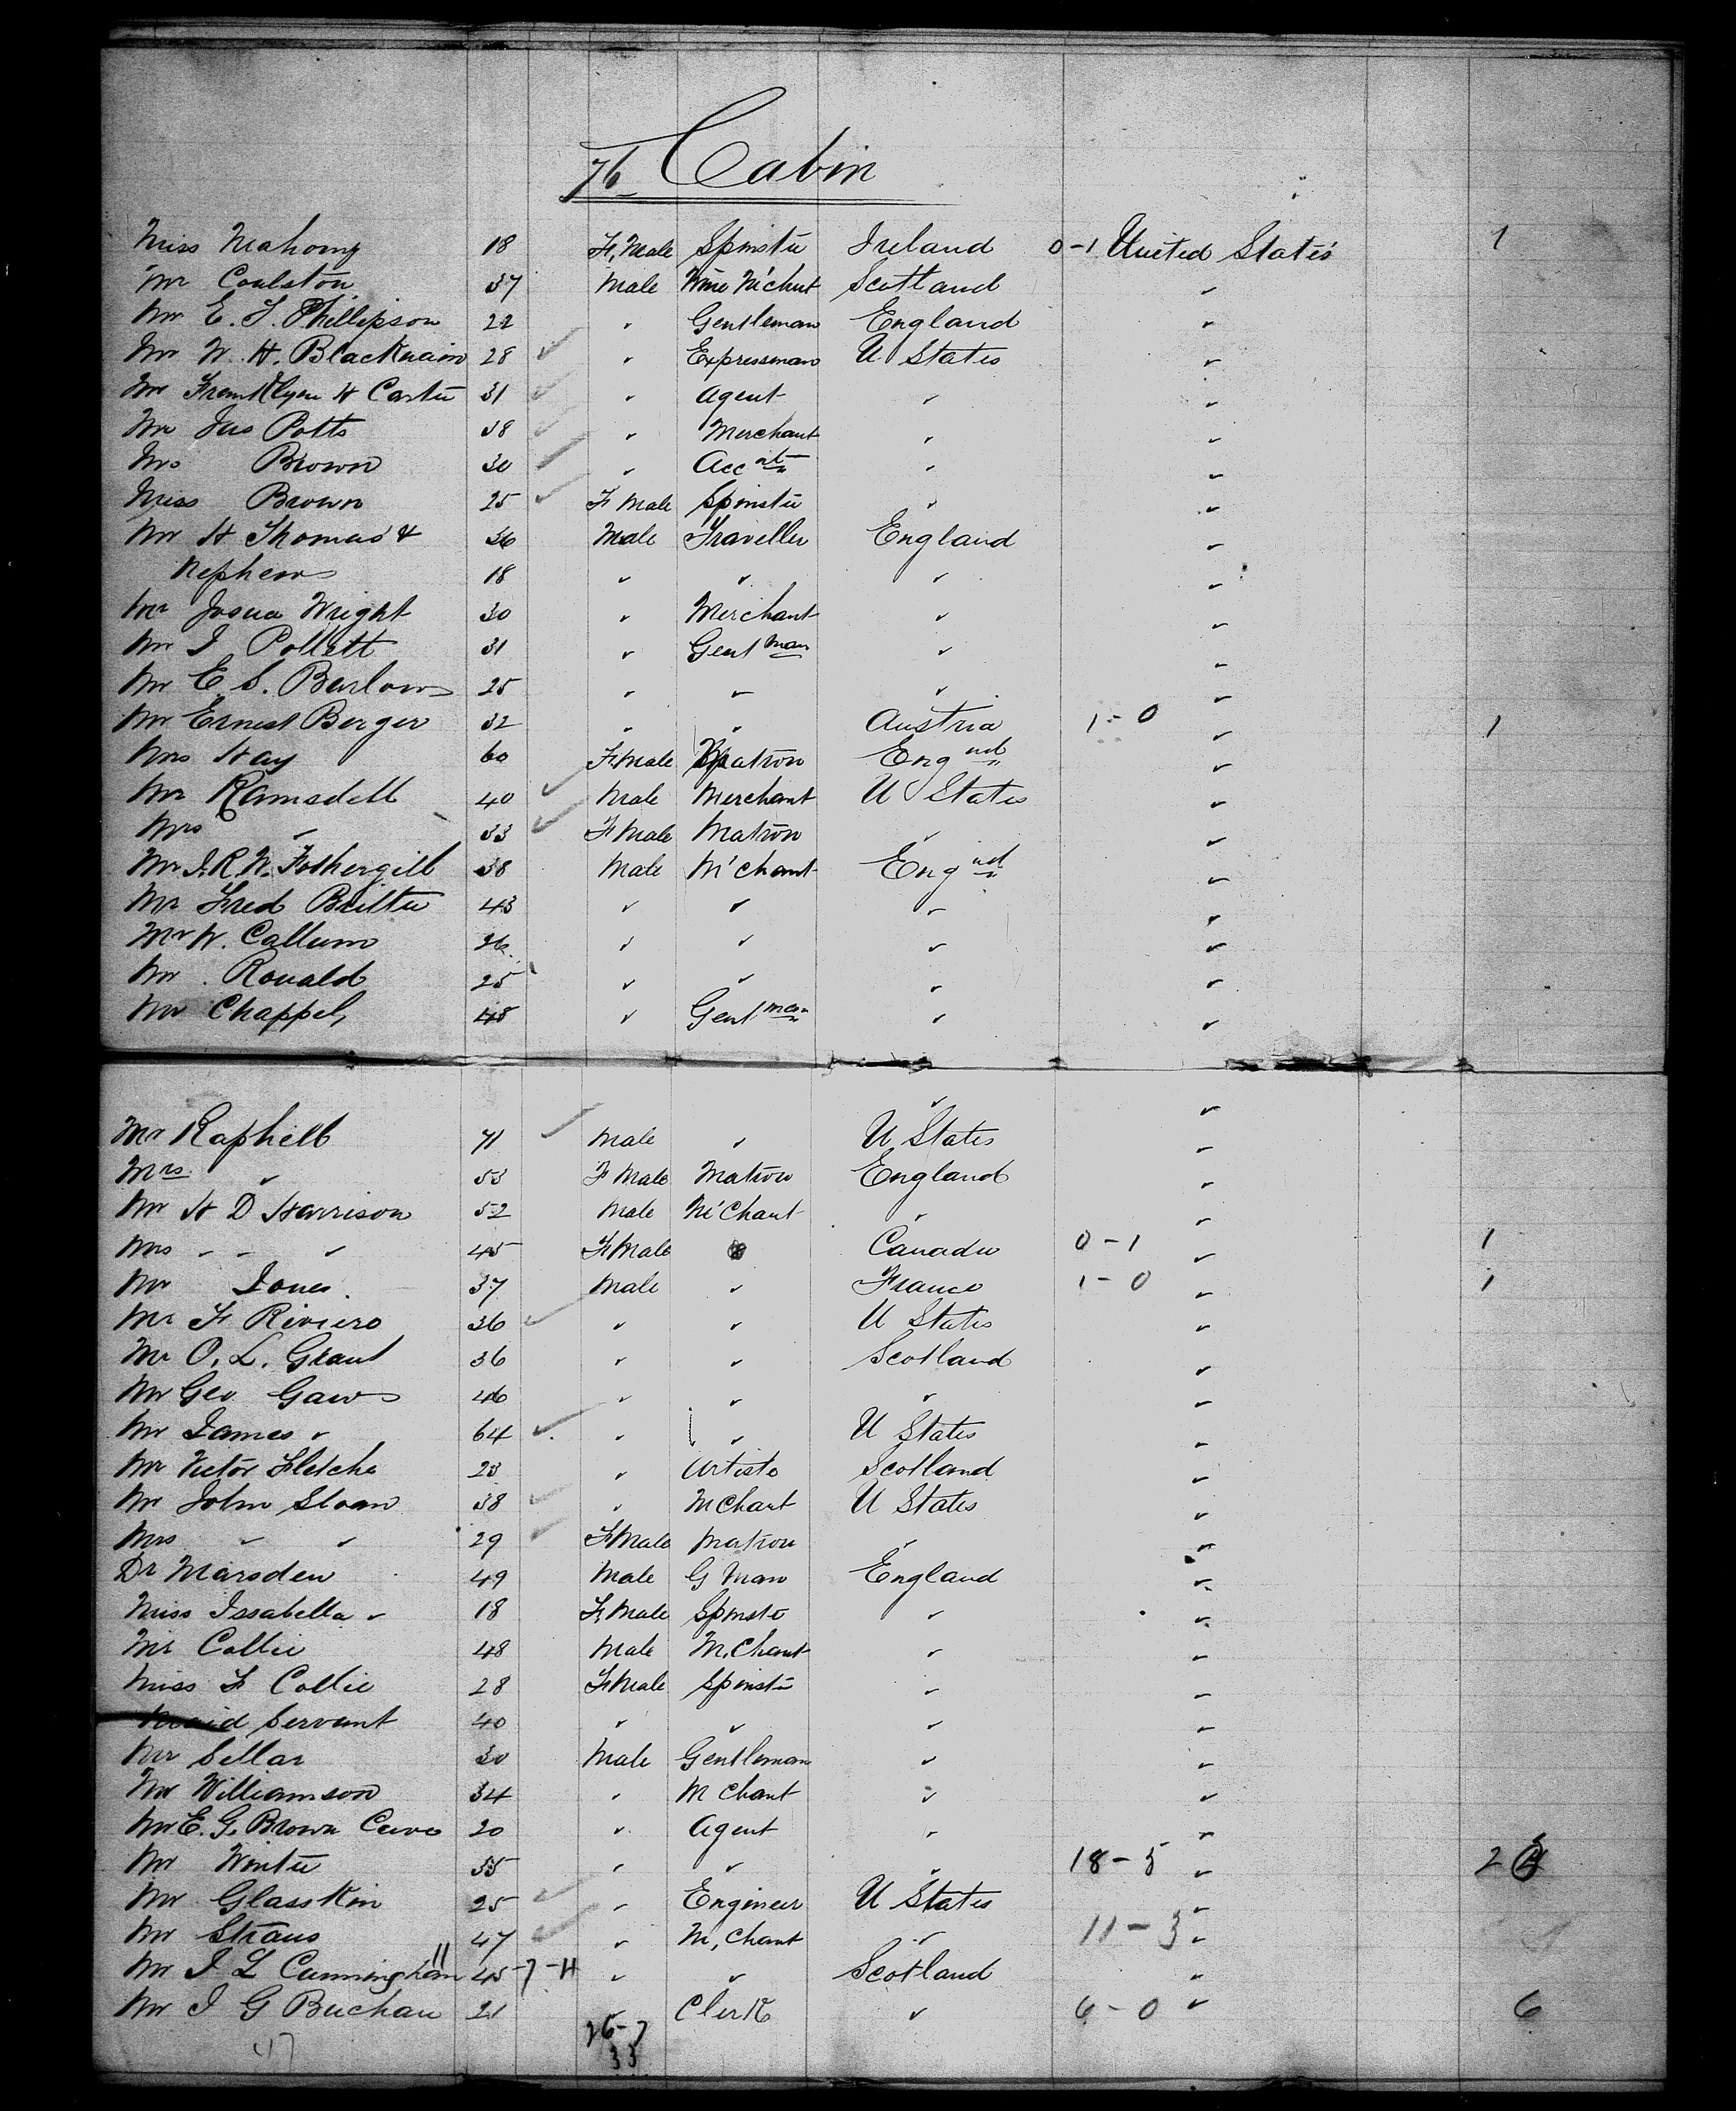 76 Cabin
Miss Mahony 18 F, Male Spinstr Ireland 0-1 United States 1
Mr Coulston 37 Male Wine M'chnt Scotland "
Mr E. J. Phillipson 22 " Gentleman England "
Mr W. H. 28 ✓ " Expressman U States "
Mr Franklyn H Carter 31 ✓ " Agent " "
Mr Jas Potts 38 ✓ " Merchant " "
Mr Brown 30 ✓ " Acc nt " "
Miss Brown 25 ✓ F Male Spinstr " "
Mr H Thomas & 36 Male Traveller England "
Nephew 18 " " " "
Mr Josua Wright 30 " Merchant " "
Mr J Pollett 31 " Gent man " "
Mr E S. Barlow 25 " " " "
Mr Ernest Berger 32 " " Austria 1-0 " 1
Mrs Hay 60 F. Male Matron Eng nd "
Mr Ramsdell 40 ✓ Male Merchant U States "
Mrs " 33 ✓ F Male Matron " "
Mr J. R. W. Fothergill 38 Male M'chant Eng nd "
Mr Fred 43 " " " "
Mr W. Callum 26 " " " "
Mr Ronald 25 " " " "
Mr Chappel, 48 " Gent man " "
" "
Mr Raphell 71 ✓ Male " U States "
Mrs " 53 F Male Matron England "
Mr H D Harrison 52 Male M'Chant " "
Mrs " " " 45 F Male Canada 0-1 " 1
Mr Jones. 37 Male " France 1-0 " 1
Mr F Riviero 36 ✓ " " U States "
Mr O. L. Grant 36 " " Scotland "
Mr Geo Gaw 46 " " " "
Mr James " 64 ✓ " " U States "
Mr Victor Fletche 23 " Artiste Scotland "
Mr John Sloan 38 ✓ " MChant U States "
Mrs " " 29 ✓ F Male Matron " "
Dr Marsden 49 Male G Man England "
Miss Issabella " 18 F. Male Spinstr " "
Mr Collie 48 Male M. Chant " "
Miss F Collie 28 F Male Spinstr " "
Maid Servant 40 " " " "
Mr Sellar 30 Male Gentleman " "
Mr Williamson 34 " M Chant " "
Mr E. G. Brown Cave 20 " Agent " "
Mr Winter 35 " " " 18-5 " 23
Mr Glasskin 25 ✓ " Engineer U States "
Mr Straus 47 ✓ " M, Chant " 11-3 "
Mr J L Cunningham 45 11-7-4 " " Scotland "
Mr J G Buchan 21 " Clerk " 6-0 " 6
47 26-7
33